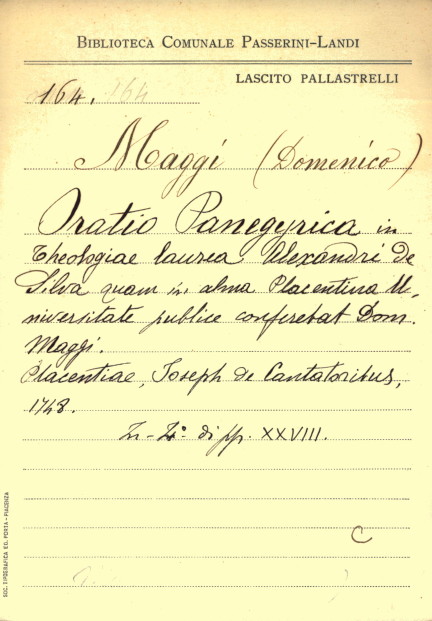 BIBLIOTECA COMUNALE PASSERINI-LANDI
LASCITO PALLASTRELLI
164. 164
Maggi (Domenico)
Oratio Panegyrica in
Theologiae laurea Alexandri de
Silva quam in alma Placentina U-
niversitate publice conferebat Dom.
Maggi.
Placentiae, Joseph de Cantatoribus,
1748.
In-4º di pp. XXVIII.
C
SOC. TIPOGRAFICA ED. PORTA - PIACENZA